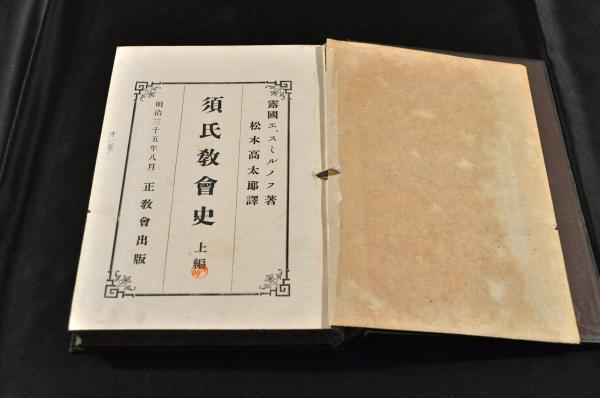 露國 エ、スミルノフ著
松本高太郎譯
須氏敎會史 上編
明治三十五年八月 正敎會出版